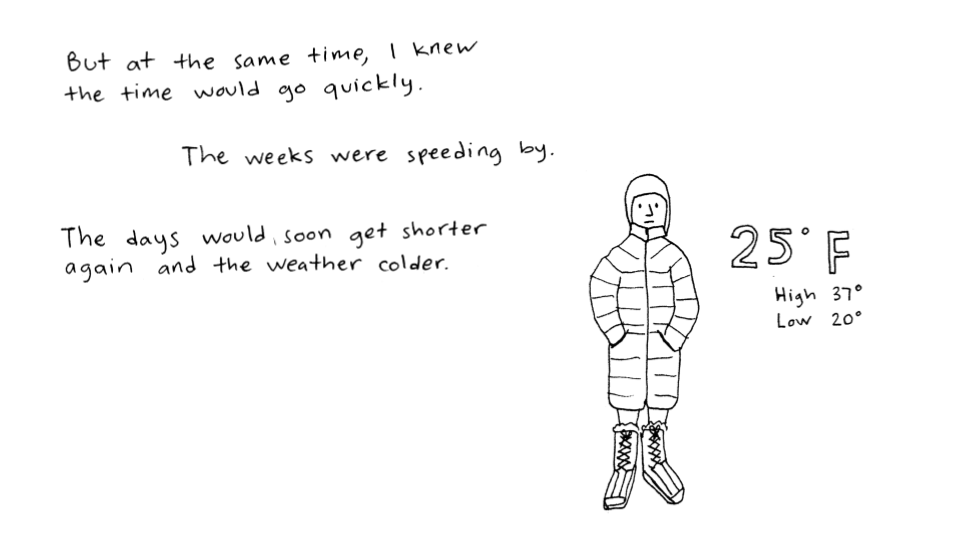 But at the same time, I knew
the time would go quickly.
The weeks were speeding by.
The days would soon get shorter
again and the weather colder.
25° F
High 37°
Low 20°